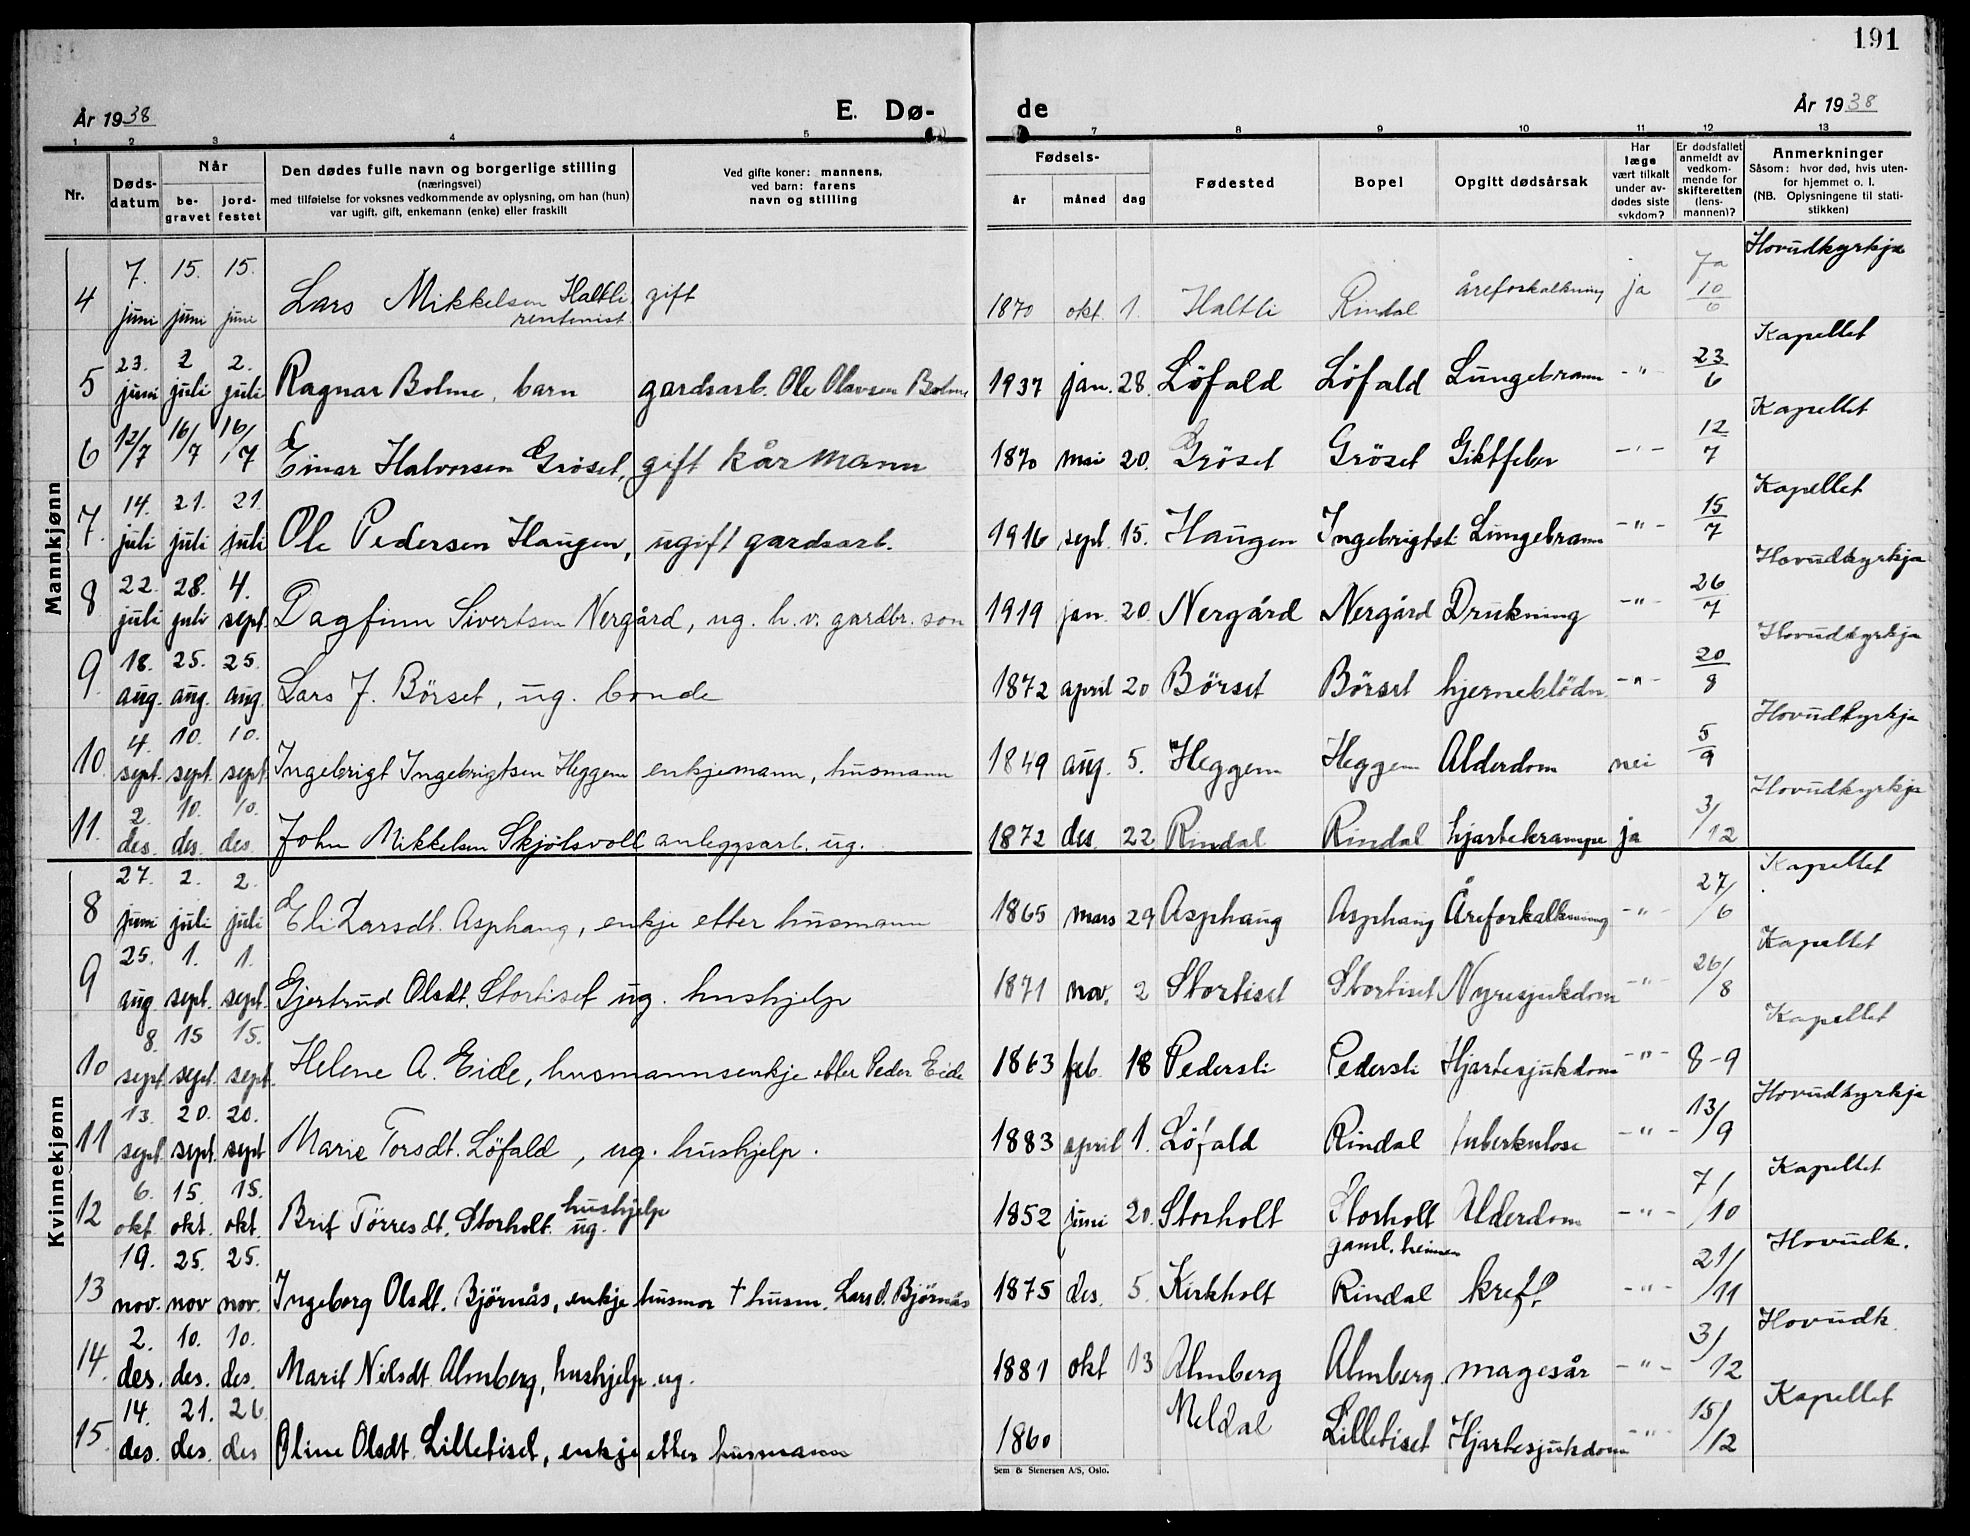 191
År 1938 E. Dø- de År 1938
1 2 3 4 5 7 8 9 10 11 12 13
Nr. Døds-datum Når be-gravet jord-festet Den dødes fulle navn og borgerlige stilling (næringsvei) med tilføielse for voksnes vedkommende av oplysning, om han (hun) var ugift, gift, enkemann (enke) eller fraskilt Ved gifte koner: mannens, ved barn: farens navn og stilling Fødsels- år måned dag Fødested Bopel Opgitt dødsårsak Har læge vært tilkalt under av-dødes siste sykdom? Er dødsfallet anmeldt av vedkom-mende for skifteretten (lens-mannen)? Anmerkninger Såsom: hvor død, hvis uten-for hjemmet o. l. (NB. Oplysningene til stati-stikken)
Mannkjønn
4 7. juni 15. juni 15. juni Lars Mikkelsen Haltli, rentenist gift 1870 okt. 1. Haltli Rindal åreforkalkning ja 10/6 Hovudkyrkja
5 23. juni 2 juli 2. juli Ragnar Bolme, barn gardsarb. Ole Olavsen Bolme 1937 jan. 28. Löfald Löfald Lungebrann -"- 23/6 Kapellet
6 12/7 16/7 16/7 Einar Halvorsen Gröset, gift kårmann 1870 mai 20. Gröset Gröset Giktfeber -"- 12/7 Kapellet
7. 14. juli 21. juli 21. juli Ole Pedersen Haugen, ugift gardsarb. 1916 sept. 15. Haugen Ingebrigtst. Lungebrann -"- 15/7 Kapellet
8 22. juli 28. juli 4. sept. Dagfinn Sivertsen Nergård, ug. h. v. gardbr. son 1919 jan. 20. Nergård Nergård Drukning -"- 26/7 Hovudkyrkja
9. 18. aug. 25. aug. 25. aug. Lars J. Börset, ug. bonde 1872 april 20 Börset Börset hjerneblödn. -"- 20/8 Hovudkyrkja
10. 4. sept. 10. sept. 10. sept. Ingebrigt Ingebrigtsen Heggem enkjemann, husmann 1849 aug. 5. Heggem Heggem Alderdom nei 5/9 Hovudkyrkja
11. 2. des. 10. des. 10. des. John Mikkelsen Skjölsvoll anleggsarb. ug. 1872 des. 22 Rindal Rindal hjartekrampe ja 3/12 Hovudkyrkja
Kvinnekjønn
8 27. juni 2. juli 2. juli Eli Larsdt. Asphaug, enkje etter husmann 1865 mars 29 Asphaug Asphaug Åreforkalkning -"- 27/6 Kapellet
9 25. aug. 1. sept. 1. sept. Gjertrud Olsdt. Stortiset ug. hushjelp 1871 nov. 2 Stortiset Stortiset Nyresjukdom -"- 26/8 Kapellet
10 8. sept. 15 sept. 15. sept. Helene A. Eide, husmannsenkje etter Peder Eide 1863 feb. 18 Pedersli Pedersli Hjartesjukdom -"- 8-9 Kapellet
11 13. sept. 20. sept. 20. sept Marie Torsdt. Löfald, ug. hushjelp. 1883 april 1. Löfald Rindal tuberkulose -"- 13/9 Hovudkyrkja
12 6. okt. 15. okt. 15. okt. Brit Törresdt. Storholt. ug. hushjelp 1852 juni 20. Storholt Storholt Alderdom -"- 7/10 Kapellet
13 19. nov. 25. nov 25. nov. Ingeborg Olsdt. Björnås, enkje husmor † husm. Lars O. Björnås 1875 des. 5. Kirkholt gaml. heimen Rindal kreft -"- 21/11 Hovudk.
14. 2. des. 10. des. 10. des. Marit Nilsdt. Almberg, hushjelp ug. 1881 okt 13 Almberg Almberg magesår -"- 3/12 Hovudk.
15. 14. des. 21. des. 26 des Oline Olsdt. Lilletiset, enkje etter husmann 1860 Meldal Lilletiset Hjartesjukdom -"- 15/12 Kapellet
Sem & Stenersen A/S, Oslo.